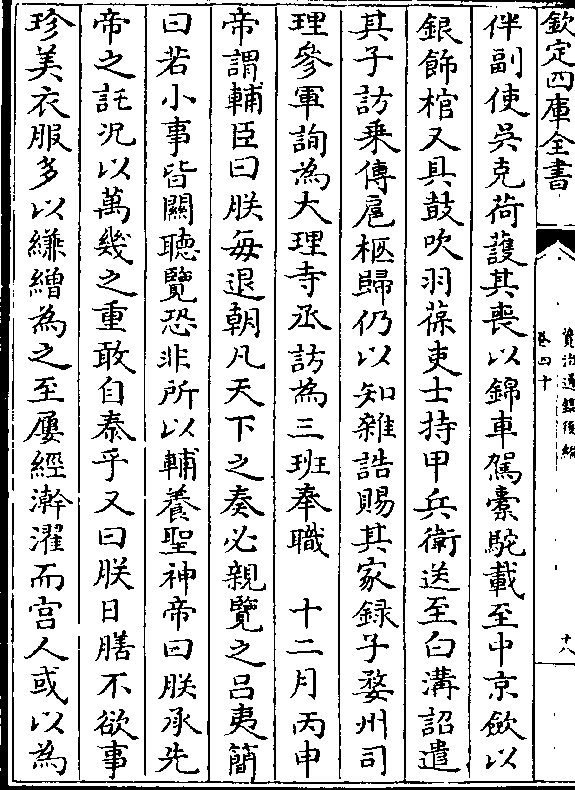 欽定四庫全書
資治通鑑後編
卷四十
十八
伴副使吳克荷護其喪以錦車駕橐駝載至中京斂以
銀飾棺又具鼓吹羽葆吏士持甲兵衛送至白溝詔遣
其子訪乗傳扈柩歸仍以知雜誥賜其家録子婺州司
理參軍詢為大理寺丞訪為三班奉職　十二月丙申
帝謂輔臣曰朕每退朝凡天下之奏必親覽之吕夷簡
曰若小事皆關聽覽恐非所以輔養聖神帝曰朕承先
帝之託况以萬幾之重敢自泰乎又曰朕日膳不欲事
珍美衣服多以縑繒為之至屢經澣濯而宫人或以為